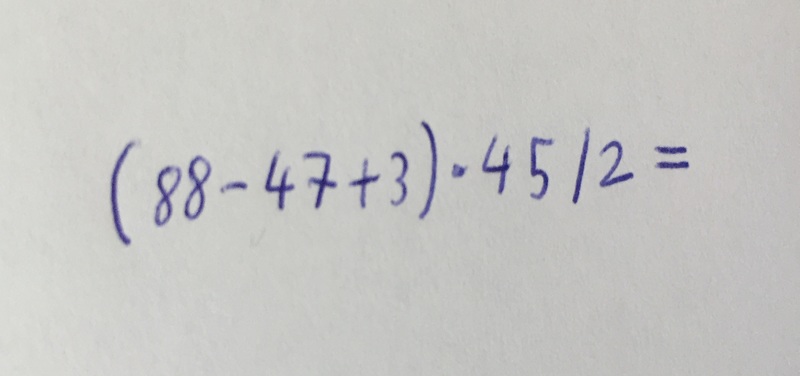 (88-47+3)·45/2=